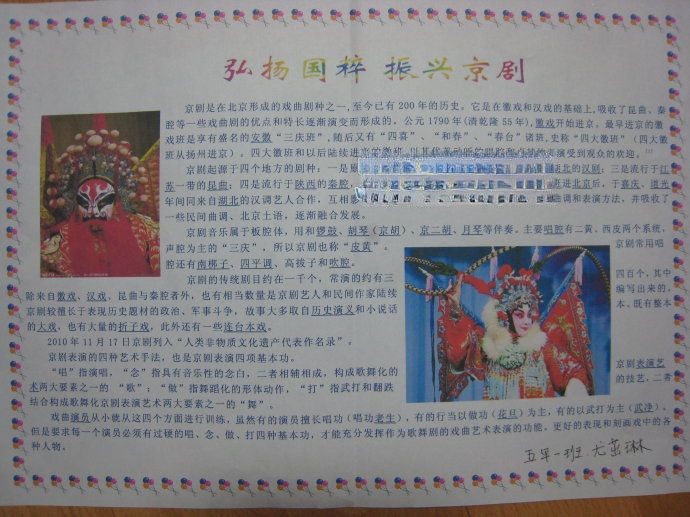 弘扬国粹 振兴京剧
京剧是在北京形成的戏曲剧种之一,至今已有 200 年的历史。它是在徽戏和汉戏的基础上,吸收了昆曲、秦
腔等一些戏曲剧的优点和特长逐渐演变而形成的。公元 1790 年(清乾隆 55 年),徽戏开始进京。最早进京的徽
戏班是享有盛名的安徽“三庆班”,随后又有“四喜”、“和春”、“春台”诸班,史称“四大徽班”(四大徽
班从扬州进京)。四大徽班和以后陆续进京的徽班,以其优美动听的唱腔和
演受到观众的欢迎。
京剧起源于四个地方的剧种:一是
湖北的汉剧;三是流行于江
苏一带的昆曲;四是流行于陕西的秦腔。
进北京后,于嘉庆、道光
年间同来自湖北的汉调艺人合作,互相影
调和表演方法,并吸收了
一些民间曲调、北京土语,逐渐融合发展。
京剧音乐属于板腔体,用和锣鼓、胡琴(京胡)、京二胡、月琴等伴奏。主要唱腔有二黄、西皮两个系统,
声腔为主的“三庆”,所以京剧也称“皮黄”。
京剧常用唱
腔还有南梆子、四平调、高拔子和吹腔。
京剧的传统剧目约在一千个,常演的约有三
四百个,其中
除来自徽戏、汉戏、昆曲与秦腔者外,也有相当数量是京剧艺人和民间作家陆续
编写出来的。
京剧较擅长于表现历史题材的政治、军事斗争,故事大多取自历史演义和小说话
本。既有整本
的大戏,也有大量的折子戏,此外还有一些连台本戏。
2010 年 11 月 17 日京剧列入“人类非物质文化遗产代表作名录”。
京剧表演的四种艺术手法,也是京剧表演四项基本功。
京剧表演艺
“唱”指演唱,“念”指具有音乐性的念白,二者相辅相成,构成歌舞化的
的技艺,二者
术两大要素之一的 “歌”;“做”指舞蹈化的形体动作,“打”指武打和翻跌
结合构成歌舞化京剧表演艺术两大要素之一的“舞”。
戏曲演员从小就从这四个方面进行训练,虽然有的演员擅长唱功(唱功老生),有的行当以做功(花旦)为主,有的以武打为主(武净)。
但是要求每一个演员必须有过硬的唱、念、做、打四种基本功,才能充分发挥作为歌舞剧的戏曲艺术表演的功能。更好的表现和刻画戏中的各
种人物。
五早一班